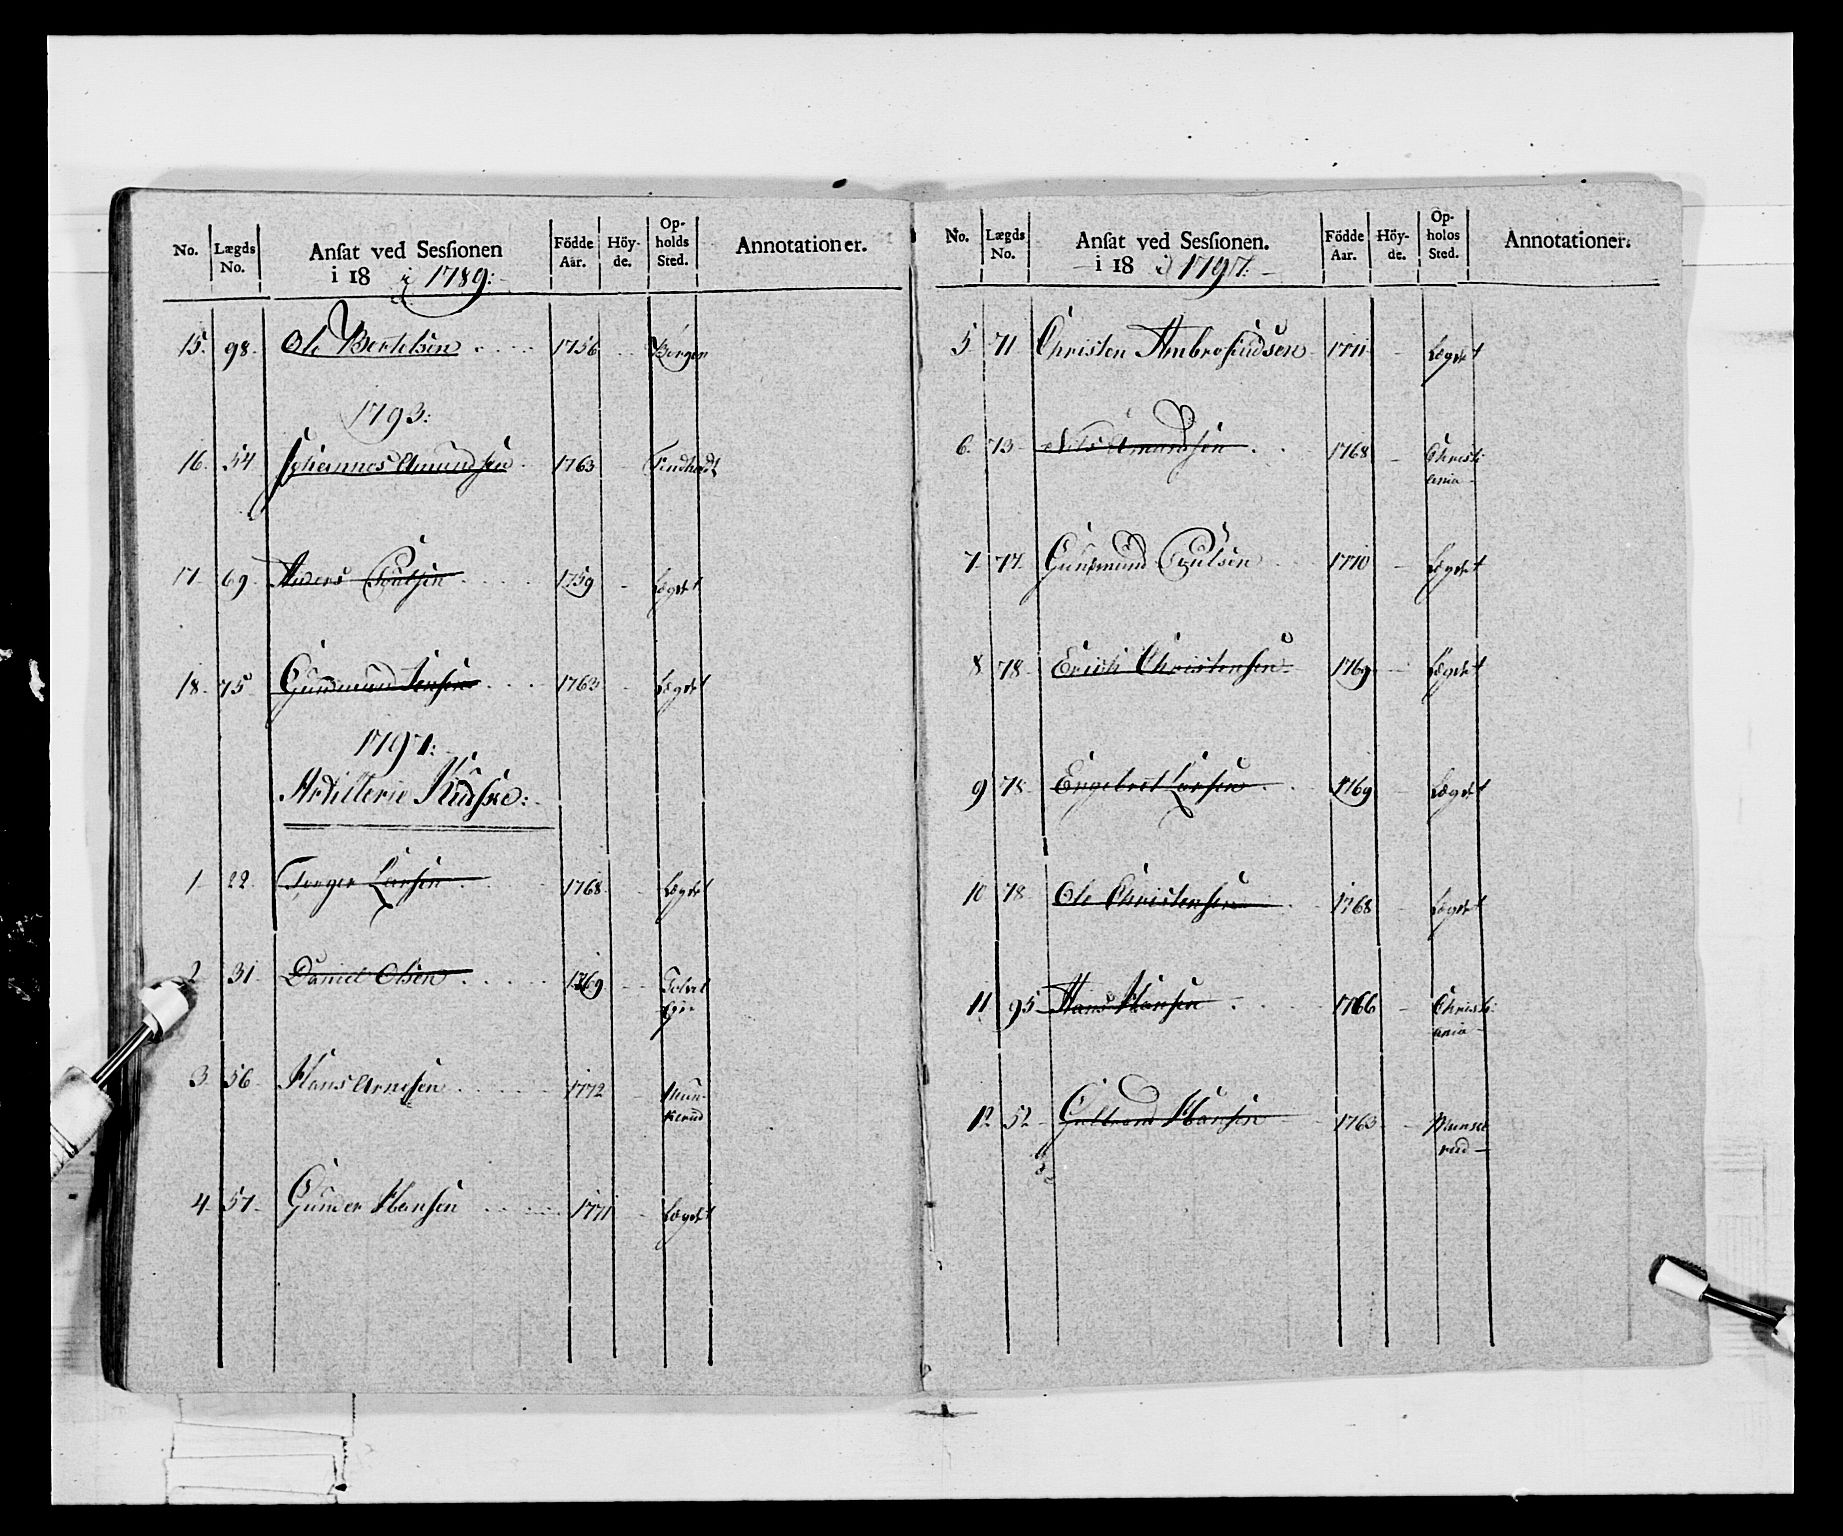 No. Lægds No. Ansat ved Sessionen i 18 i 1789: Födde Aar. Höyde. Opholds Sted. Annotationer.
15. 98. Ole Bertelsen 1756 Bergen
1793:
16. 54 Johannes Amundsen 1763
17. 69. Anders Poulsen 1759 Lægdet
18. 75 Gudmund Jensen 1763 Lægdet
1797:
Artillerie Kudske:
1. 22. Torger Larsen 1768 Lægdet
2. 31. Daniel Olsen 1769
3. 56. Hans Arnesen 1772 Munkerud
4. 57. Gunder Hansen 1771 Lægdet
No. Lægds No. Ansat ved Sessionen. i 18 i 1797. Födde Aar. Höyde. Opholds Sted. Annotationer.
5 71 Christen Ambrosiudsen 1771 Lægdet
6. 73 Nils Amundsen 1768 Christiania
7. 77. Gudmund Poulsen 1770 Lægdet
8 78. Erich Christensen 1769 Lægdet
9 78. Engebret Larsen 1769 Lægdet
10 78 Ole Christensen 1768 Lægdet
11 95 Hans Hansen 1766 Christiania
12 52 Gulbrand Hansen 1763